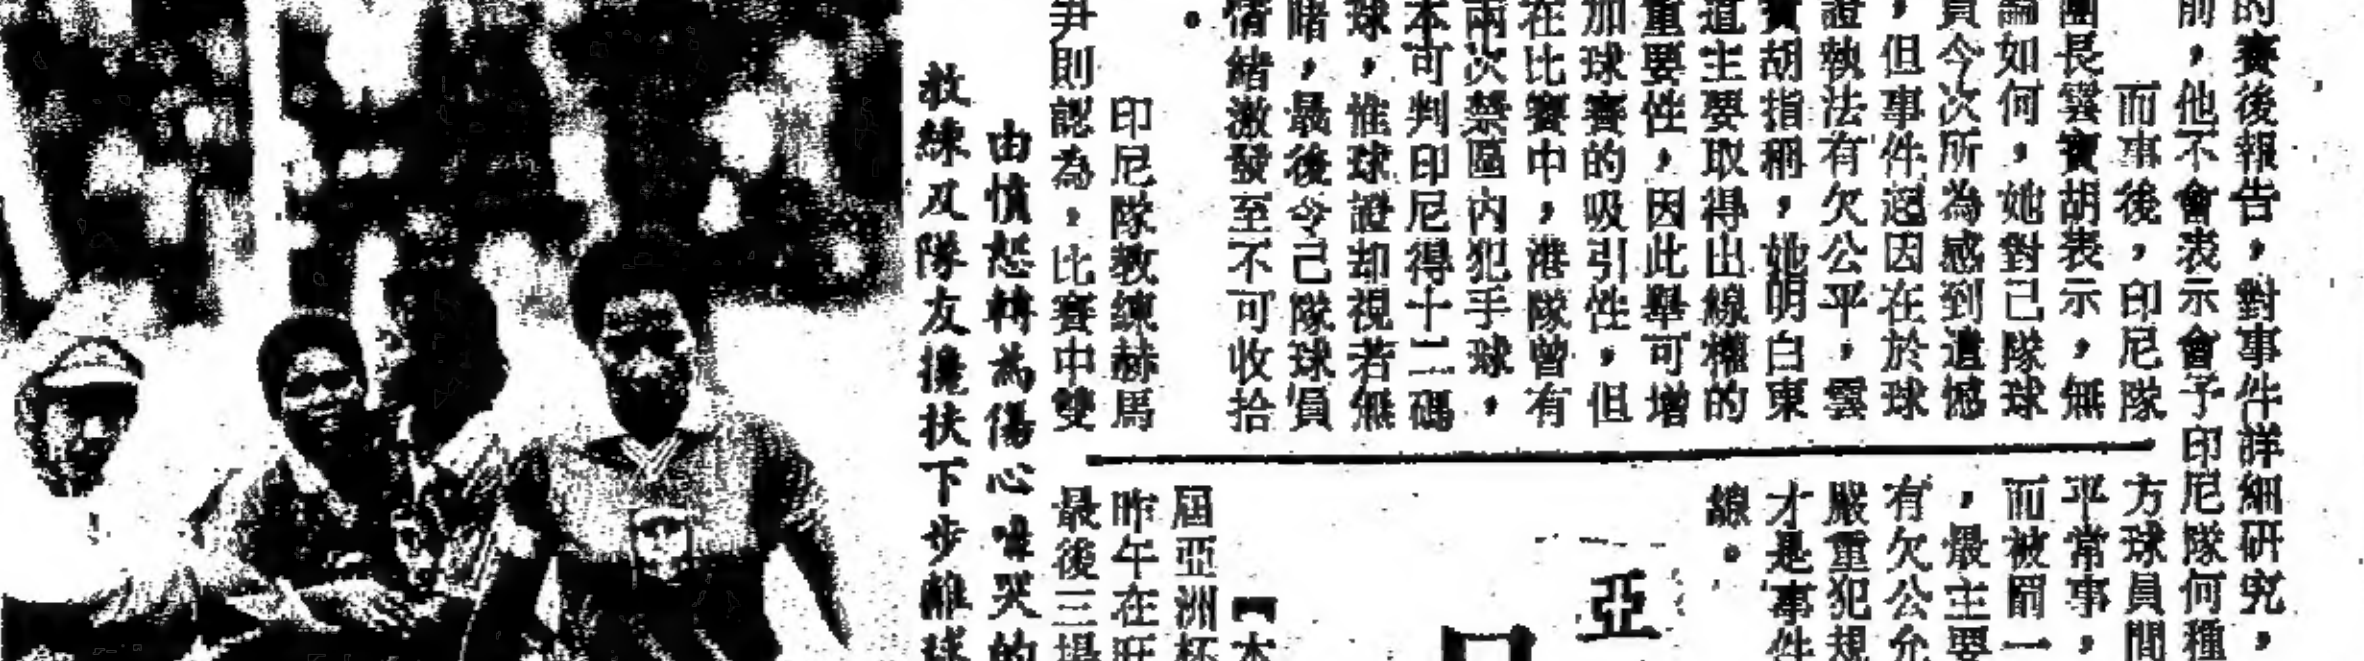 的賽後報告，對事件詳細研究，
前，他不會表示會予印尼隊何種
而事後，印尼隊
團長雲寶胡表示，無
論如何，她對己隊球
員今次所為感到遺憾
，但事件起因在於球
證執法有欠公平，雲
寶胡指稱，她明白東
道主要取得出線權的
重要性，因此舉可增
加球賽的吸引性，但
在比賽中，港隊曾有
兩次禁區內犯手球，
本可判印尼得十二碼
球，惟球證却視若無
睹，最後令己隊球員
情緒激發至不可收拾
。
印尼隊教練赫馬
尹則認為，比賽中雙
方球員間
平常事，
而被罰一
，最主要
有欠公允
嚴重犯規
才是事件
線。
亞
【本
屆亞洲杯
昨午在旺
最後三場
由憤怒轉為傷心哭的
教練及隊友攙扶下步離球